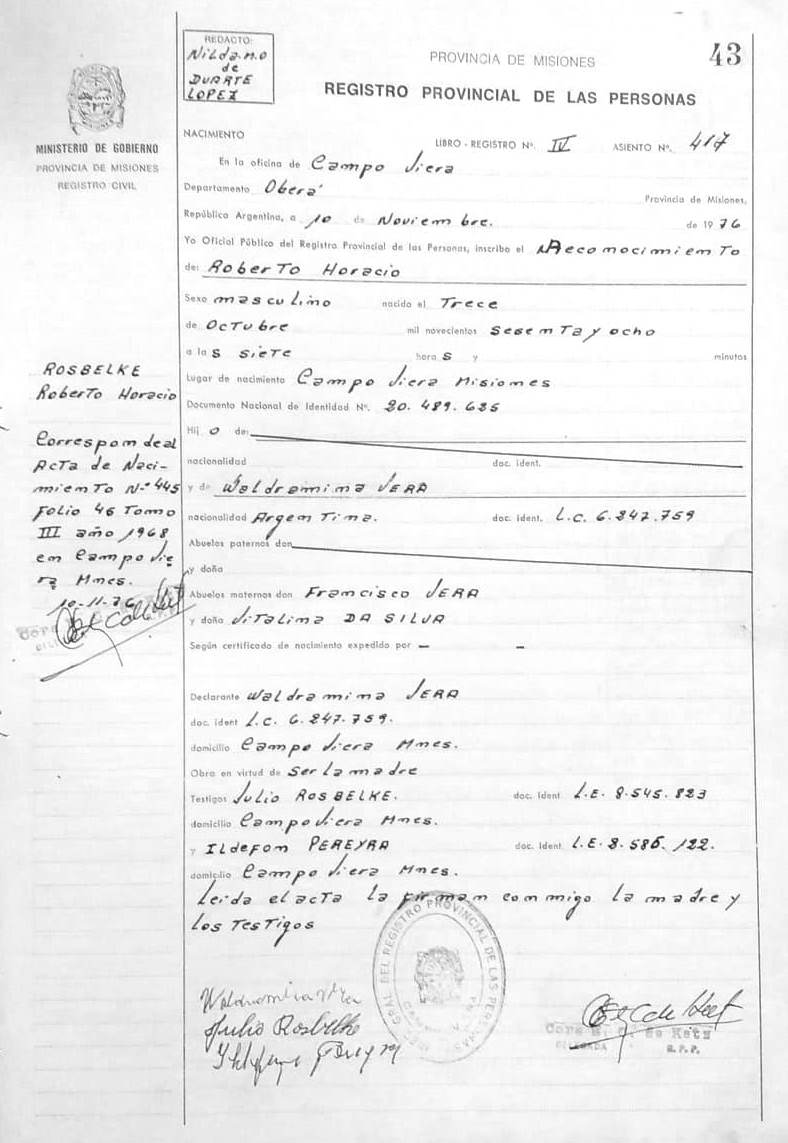 REDACTO:
Nilda n.o
de
DUARTE
LOPEZ
PROVINCIA DE MISIONES
43
REGISTRO PROVINCIAL DE LAS PERSONAS
MINISTERIO DE GOBIERNO
PROVINCIA DE MISIONES
REGISTRO CIVIL
NACIMIENTO
LIBRO - REGISTRO Nº. IV ASIENTO Nº. 417
En la oficina de Campo Viera
Departamento Oberá Provincia de Misiones,
República Argentina, a 10 de Noviembre. de 1976
Yo Oficial Público del Registro Provincial de las Personas, inscribo el Reconocimiento
de: Roberto Horacio
Sexo masculino nacido el Trece
de Octubre mil novecientos sesenta y ocho
a las siete horas y minutos
Lugar de nacimiento Campo Viera Misiones
Documento Nacional de Identidad Nº. 20.489.635
Hijo de:
nacionalidad doc. ident.
y de Waldramina VERA
nacionalidad Argentina. doc. ident. L.C. 6.247.759
Abuelos paternos don
y doña
Abuelos maternos don Francisco VERA
y doña Vitalina DA SILVA
Según certificado de nacimiento expedido por — —
Declarante Waldramina VERA
doc. ident L.C. 6.247.759.
domicilio Campo Viera Mnes.
Obra en virtud de ser la madre
Testigos Julio ROSBELKE. doc. ident L.E. 8.545.823
domicilio Campo Viera Mnes.
y Ildefon PEREYRA doc. ident L.E. 8.586.122.
domicilio Campo Viera Mnes.
Leida el acta la firman conmigo la madre y
los Testigos
ROSBELKE
Roberto Horacio
Corresponde al
Acta de Naci-
miento N.º 445
Folio 46 Tomo
III año 1968
en Campo Vie
ra Mnes.
10-11-76
GRAL DEL REGISTRO PROVINCIAL DE LAS PERSONAS
Julio Rosbelke
de Katz
R.P.P.